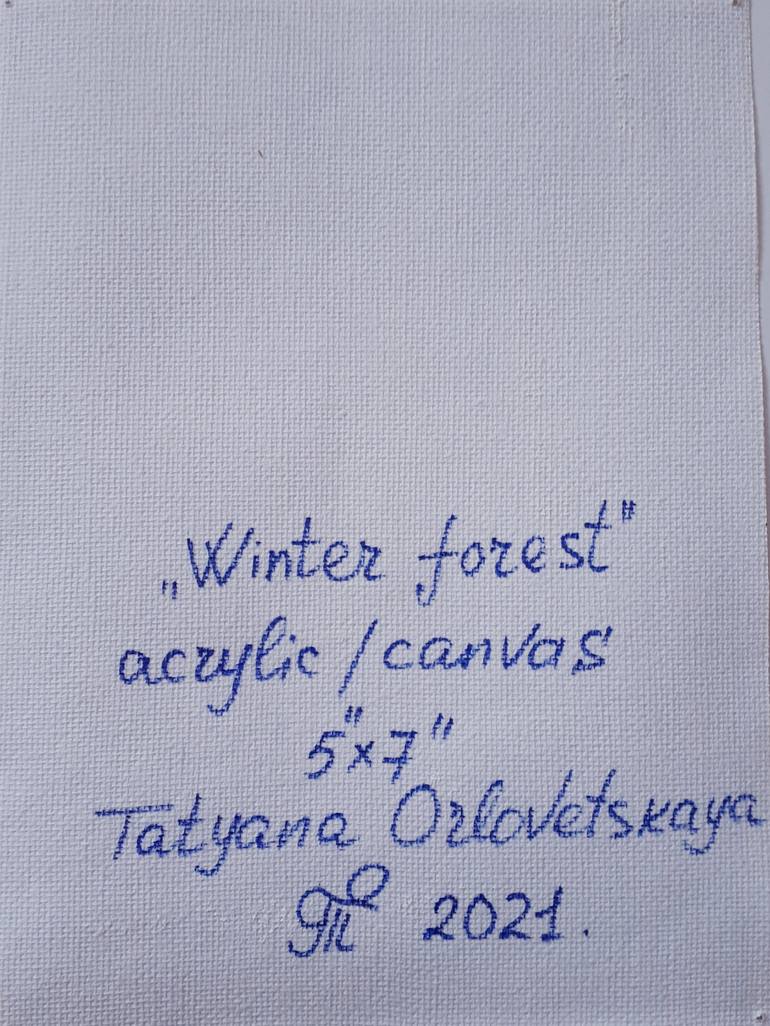 „Winter forest"
acrylic / canvas
5"x7"
Tatyana Orlovetskaya
2021.